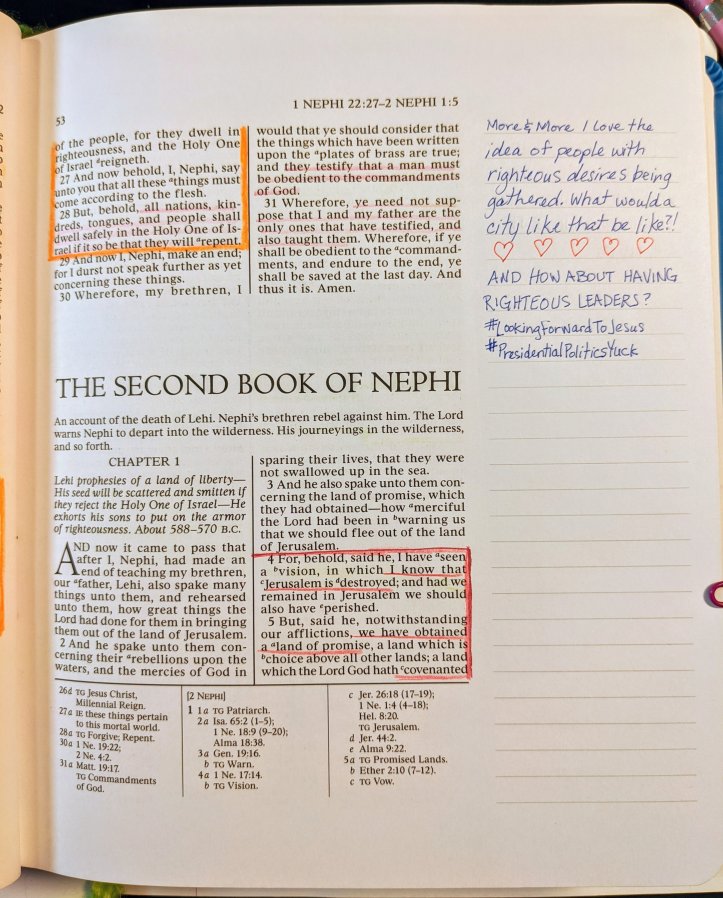 53
1 NEPHI 22:27–2 NEPHI 1:5
of the people, for they dwell in
righteousness, and the Holy One
of Israel ᵃreigneth.
27 And now behold, I, Nephi, say
unto you that all these ᵃthings must
come according to the flesh.
28 But, behold, all nations, kin-
dreds, tongues, and people shall
dwell safely in the Holy One of Is-
rael if it so be that they will ᵃrepent.
29 And now I, Nephi, make an end;
for I durst not speak further as yet
concerning these things.
30 Wherefore, my brethren, I
would that ye should consider that
the things which have been written
upon the ᵃplates of brass are true;
and they testify that a man must
be obedient to the commandments
of God.
31 Wherefore, ye need not sup-
pose that I and my father are the
only ones that have testified, and
also taught them. Wherefore, if ye
shall be obedient to the ᵃcommand-
ments, and endure to the end, ye
shall be saved at the last day. And
thus it is. Amen.
THE SECOND BOOK OF NEPHI
An account of the death of Lehi. Nephi's brethren rebel against him. The Lord
warns Nephi to depart into the wilderness. His journeyings in the wilderness,
and so forth.
CHAPTER 1
Lehi prophesies of a land of liberty—
His seed will be scattered and smitten if
they reject the Holy One of Israel—He
exhorts his sons to put on the armor
of righteousness. About 588–570 B.C.
AND now it came to pass that
after I, Nephi, had made an
end of teaching my brethren,
our ᵃfather, Lehi, also spake many
things unto them, and rehearsed
unto them, how great things the
Lord had done for them in bringing
them out of the land of Jerusalem.
2 And he spake unto them con-
cerning their ᵃrebellions upon the
waters, and the mercies of God in
sparing their lives, that they were
not swallowed up in the sea.
3 And he also spake unto them con-
cerning the land of promise, which
they had obtained—how ᵃmerciful
the Lord had been in ᵇwarning us
that we should flee out of the land
of Jerusalem.
4 For, behold, said he, I have ᵃseen
a ᵇvision, in which I know that
ᶜJerusalem is ᵈdestroyed; and had we
remained in Jerusalem we should
also have ᵉperished.
5 But, said he, notwithstanding
our afflictions, we have obtained
a ᵃland of promise, a land which is
ᵇchoice above all other lands; a land
which the Lord God hath ᶜcovenanted
26a TG Jesus Christ,
Millennial Reign.
27a IE these things pertain
to this mortal world.
28a TG Forgive; Repent.
30a 1 Ne. 19:22;
2 Ne. 4:2.
31a Matt. 19:17.
TG Commandments
of God.
[2 NEPHI]
1 1a TG Patriarch.
2a Isa. 65:2 (1–5);
1 Ne. 18:9 (9–20);
Alma 18:38.
3a Gen. 19:16.
b TG Warn.
4a 1 Ne. 17:14.
b TG Vision.
c Jer. 26:18 (17–19);
1 Ne. 1:4 (4–18);
Hel. 8:20.
TG Jerusalem.
d Jer. 44:2.
e Alma 9:22.
5a TG Promised Lands.
b Ether 2:10 (7–12).
c TG Vow.
More & More I love the
idea of people with
righteous desires being
gathered. What would a
city like that be like?!
AND HOW ABOUT HAVING
RIGHTEOUS LEADERS?
#LookingForwardToJesus
#PresidentialPoliticsYuck